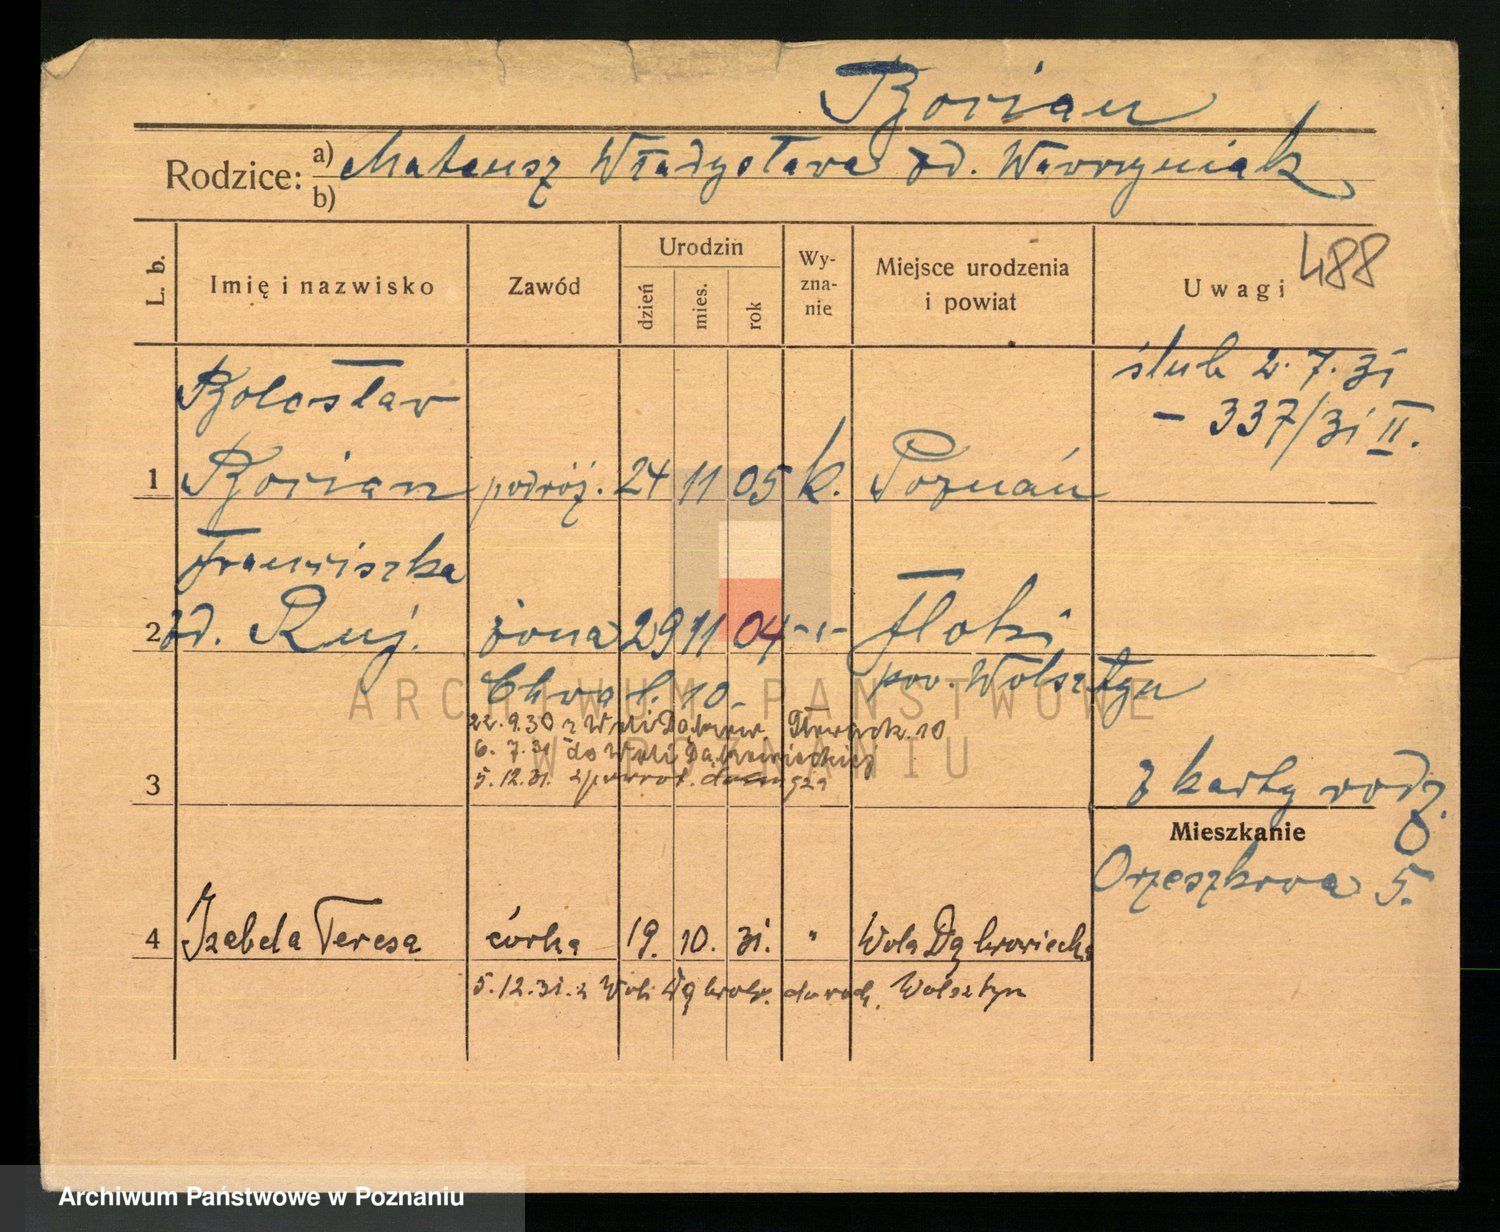 Borian
Rodzice: a) Mateusz Władysława zd. Wawrzyniak
b)
488
L. b.
Imię i nazwisko
Zawód
Urodzin
dzień
mies.
rok
Wy-
zna-
nie
Miejsce urodzenia
i powiat
Uwagi
ślub 2.7.31
- 337/31 II.
Bolesław
1 Borian podróż. 24 11 05 k. Poznań
Franciszka
2 zd. Ruj. żona 29 11 04 -"- Tłoki
pow. Wolsztyn
Chwal. 10.
22.9.30 z Woli Dąbrow. 10
6.7.31 do Woli Dąbrowieckiej
5.12.31.
3
z karty rodz.
Mieszkanie
Orzeszkowa 5.
4 Izabela Teresa córka 19. 10. 31. " Wola Dąbrowiecka
5.12.31. z Woli Dąbrow. Wolsztyn
ARCHIWUM PAŃSTWOWE
W POZNANIU
Archiwum Państwowe w Poznaniu